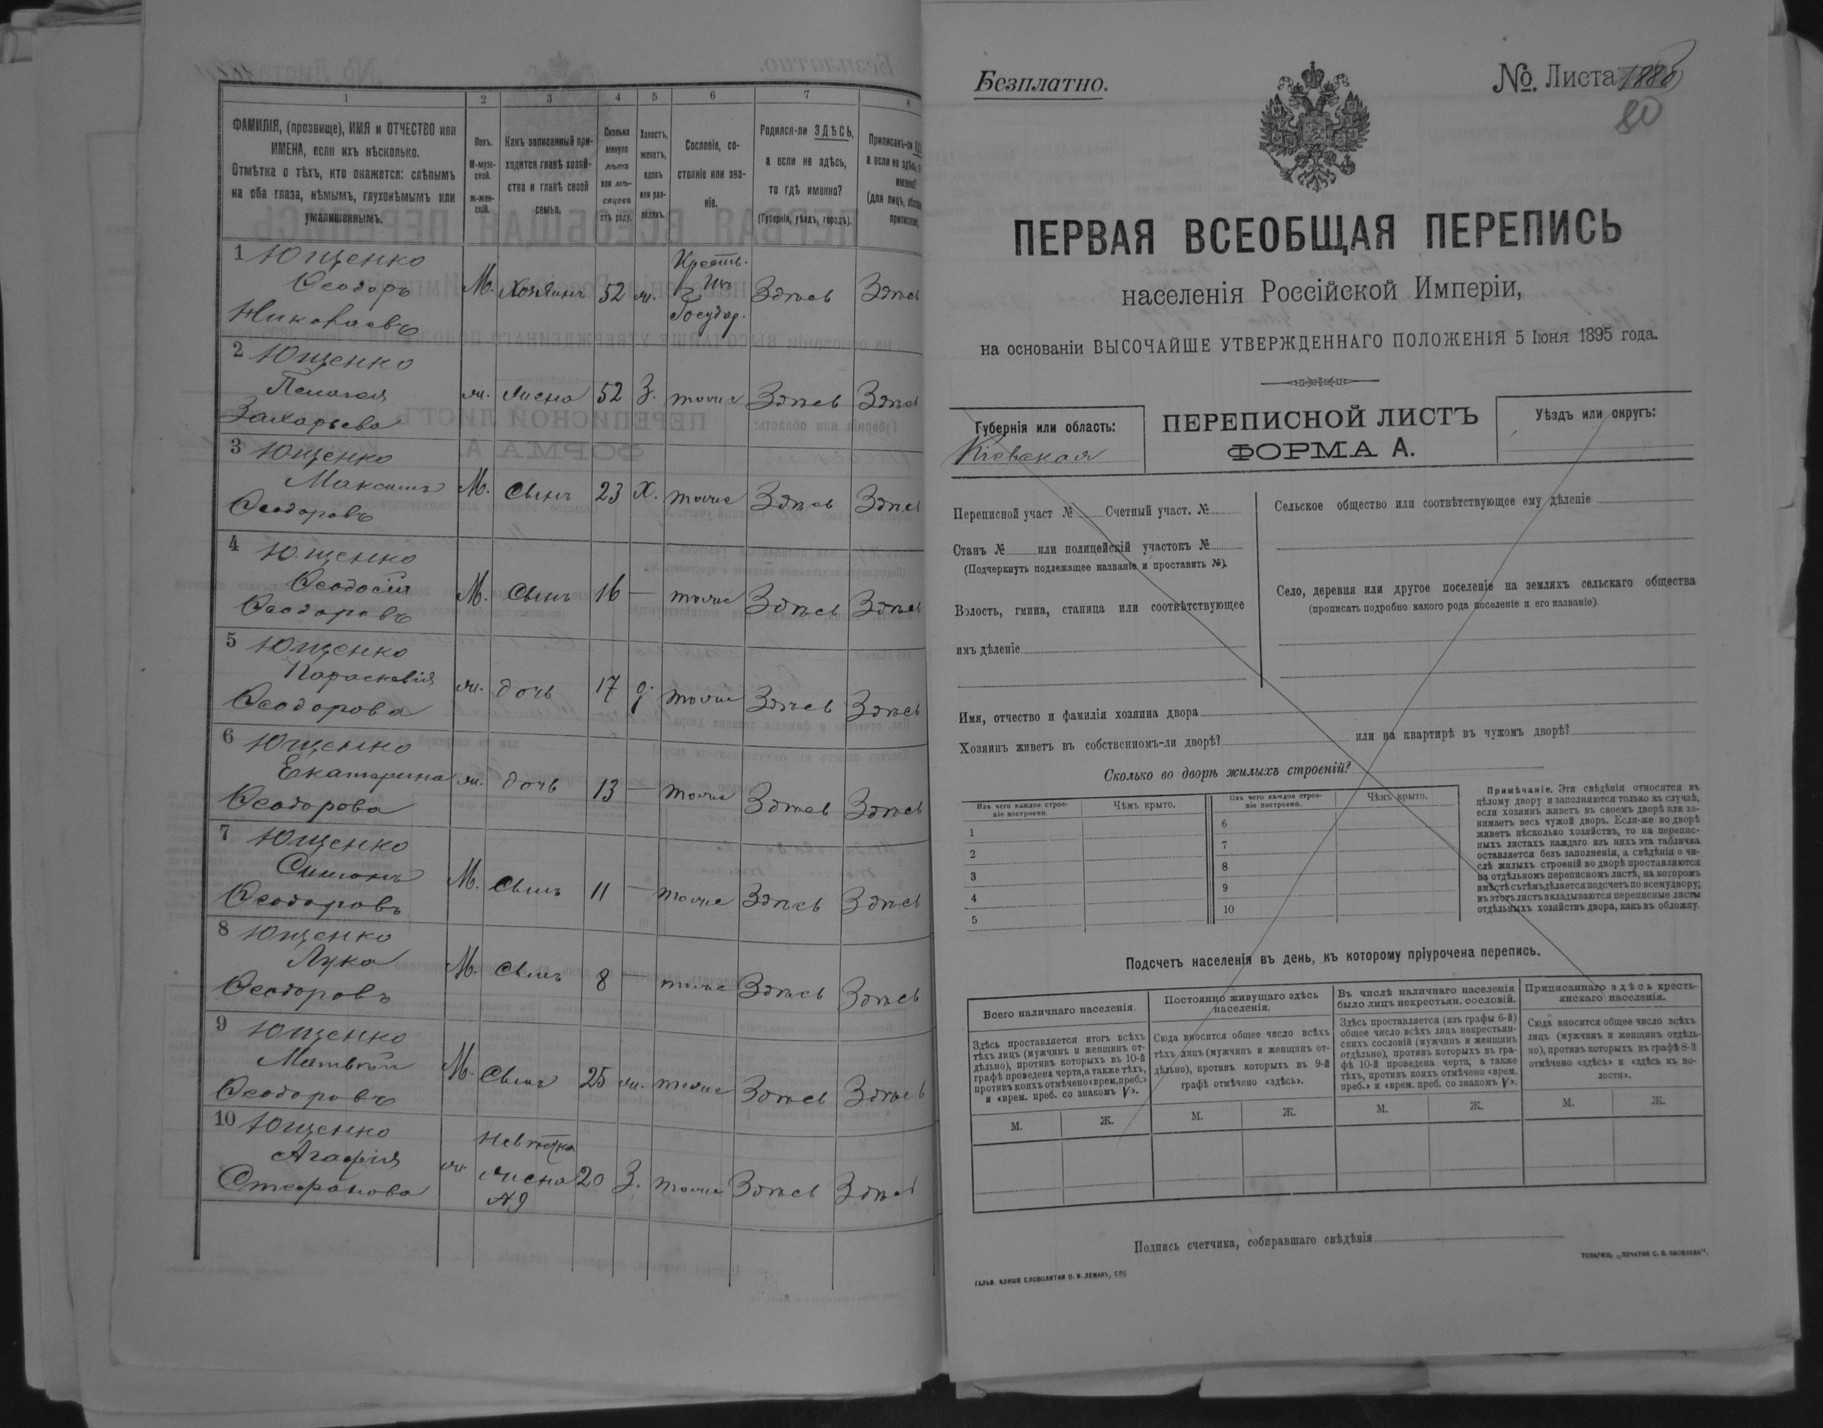 1 2 3 4 5 6 7 8
ФАМИЛІЯ, (прозвище), ИМЯ и ОТЧЕСТВО или
ИМЕНА, если ихъ нѣсколько.
Отмѣтка о тѣхъ, кто окажется: слѣпымъ
на оба глаза, нѣмымъ, глухонѣмымъ или
умалишеннымъ.
Полъ.
М-муж-
ской.
ж-жен-
скій.
Какъ записанный при-
ходится главѣ хозяй-
ства и главѣ своей
семьи.
Сколько
минуло
лѣтъ
или мѣ-
сяцевъ
отъ роду.
Холостъ,
женатъ,
вдовъ
или раз-
веденъ.
Сословіе, со-
стояніе или зва-
ніе.
Родился-ли ЗДѢСЬ,
а если не здѣсь,
то гдѣ именно?
(Губернія, уѣздъ, городъ).
Приписанъ-ли
а если не здѣсь,
именно?
(для лицъ,
1 Ющенко
Ѳеодоръ
Николаевъ
М. Хозяинъ 52 ж. Крестьян. изъ Государ. Здѣсь Здѣсь
2 Ющенко
Пелагея
Захарьева
ж. жена 52 З. тоже Здѣсь Здѣсь
3 Ющенко
Максимъ
Ѳеодоровъ
М. Сынъ 23 Х. тоже Здѣсь Здѣсь
4 Ющенко
Ѳеодосій
Ѳеодоровъ
М. Сынъ 16 — тоже Здѣсь Здѣсь
5 Ющенко
Параскевія
Ѳеодорова
ж. дочь 17 д. тоже Здѣсь Здѣсь
6 Ющенко
Екатерина
Ѳеодорова
ж. дочь 13 — тоже Здѣсь Здѣсь
7 Ющенко
Симеонъ
Ѳеодоровъ
М. Сынъ 11 — тоже Здѣсь Здѣсь
8 Ющенко
Лука
Ѳеодоровъ
М. Сынъ 8 — тоже Здѣсь Здѣсь
9 Ющенко
Матвѣй
Ѳеодоровъ
М. Сынъ 25 ж. тоже Здѣсь Здѣсь
10 Ющенко
Агафія
Стефанова
ж. Невѣстка жена 9 20 З. тоже Здѣсь Здѣсь
Безплатно.
№. Листа 1880
80
ПЕРВАЯ ВСЕОБЩАЯ ПЕРЕПИСЬ
населенія Россійской Имперіи,
на основаніи ВЫСОЧАЙШЕ УТВЕРЖДЕННАГО ПОЛОЖЕНІЯ 5 Іюня 1895 года.
Губернія или область:
Кіевская
ПЕРЕПИСНОЙ ЛИСТЪ
ФОРМА А.
Уѣздъ или округъ:
Переписной участ № Счетный участ. №
Станъ № или полицейскій участокъ №
(Подчеркнуть подлежащее названіе и проставить №).
Волость, гмина, станица или соотвѣтствующее
имъ дѣленіе
Сельское общество или соотвѣтствующее ему дѣленіе
Село, деревня или другое поселеніе на земляхъ сельскаго общества
(прописать подробно какого рода поселеніе и его названіе)
Имя, отчество и фамилія хозяина двора
Хозяинъ живетъ въ собственномъ-ли дворѣ? или на квартирѣ въ чужомъ дворѣ?
Сколько во дворѣ жилыхъ строеній?
Изъ чего каждое строе-
ніе построено.
Чѣмъ крыто.
Изъ чего каждое строе-
ніе построено.
Чѣмъ крыто.
1 6
2 7
3 8
4 9
5 10
Примѣчаніе. Эти свѣдѣнія относятся къ
цѣлому двору и заполняются только въ случаѣ,
если хозяинъ живетъ въ своемъ дворѣ или за-
нимаетъ весь чужой дворъ. Если-же во дворѣ
живетъ нѣсколько хозяйствъ, то на перепис-
ныхъ листахъ каждаго изъ нихъ эта табличка
оставляется безъ заполненія, а свѣдѣнія о чи-
слѣ жилыхъ строеній во дворѣ проставляются
на отдѣльномъ переписномъ листѣ, на которомъ
вмѣстѣ съ тѣмъ дѣлается подсчетъ по всему двору;
въ этотъ листъ вкладываются переписные листы
отдѣльныхъ хозяйствъ двора, какъ въ обложку.
Подсчетъ населенія въ день, къ которому пріурочена перепись.
Всего наличнаго населенія.
Здѣсь проставляется итогъ всѣхъ
тѣхъ лицъ (мужчинъ и женщинъ от-
дѣльно), противъ которыхъ въ 10-й
графѣ проведена черта, а также тѣхъ,
противъ коихъ отмѣчено «врем. преб.»
и «врем. преб. со знакомъ V».
Постоянно живущаго здѣсь
населенія.
Сюда вносится общее число всѣхъ
тѣхъ лицъ (мужчинъ и женщинъ от-
дѣльно), противъ которыхъ въ 9-й
графѣ отмѣчено «здѣсь».
Въ числѣ наличнаго населенія
было лицъ некрестьян. сословій.
Здѣсь проставляется (изъ графы 6-й)
общее число всѣхъ лицъ некрестьян-
скихъ сословій (мужчинъ и женщинъ
отдѣльно), противъ которыхъ въ гра-
фѣ 10-й проведена черта, а также
тѣхъ, противъ коихъ отмѣчено «врем.
преб.» и «врем. преб. со знакомъ V».
Приписаннаго здѣсь кресть-
янскаго населенія.
Сюда вносится общее число всѣхъ
лицъ (мужчинъ и женщинъ отдѣль-
но), противъ которыхъ въ графѣ 8-й
отмѣчено «здѣсь» и «здѣсь въ во-
лости».
М. Ж. М. Ж. М. Ж. М. Ж.
Подпись счетчика, собиравшаго свѣдѣнія
ГАЛЬВ. КЛИШЕ СЛОВОЛИТНИ О. И. ЛЕМАНЪ, СПБ
ТОВАРИЩ. „ПЕЧАТНЯ С. П. ЯКОВЛЕВА".